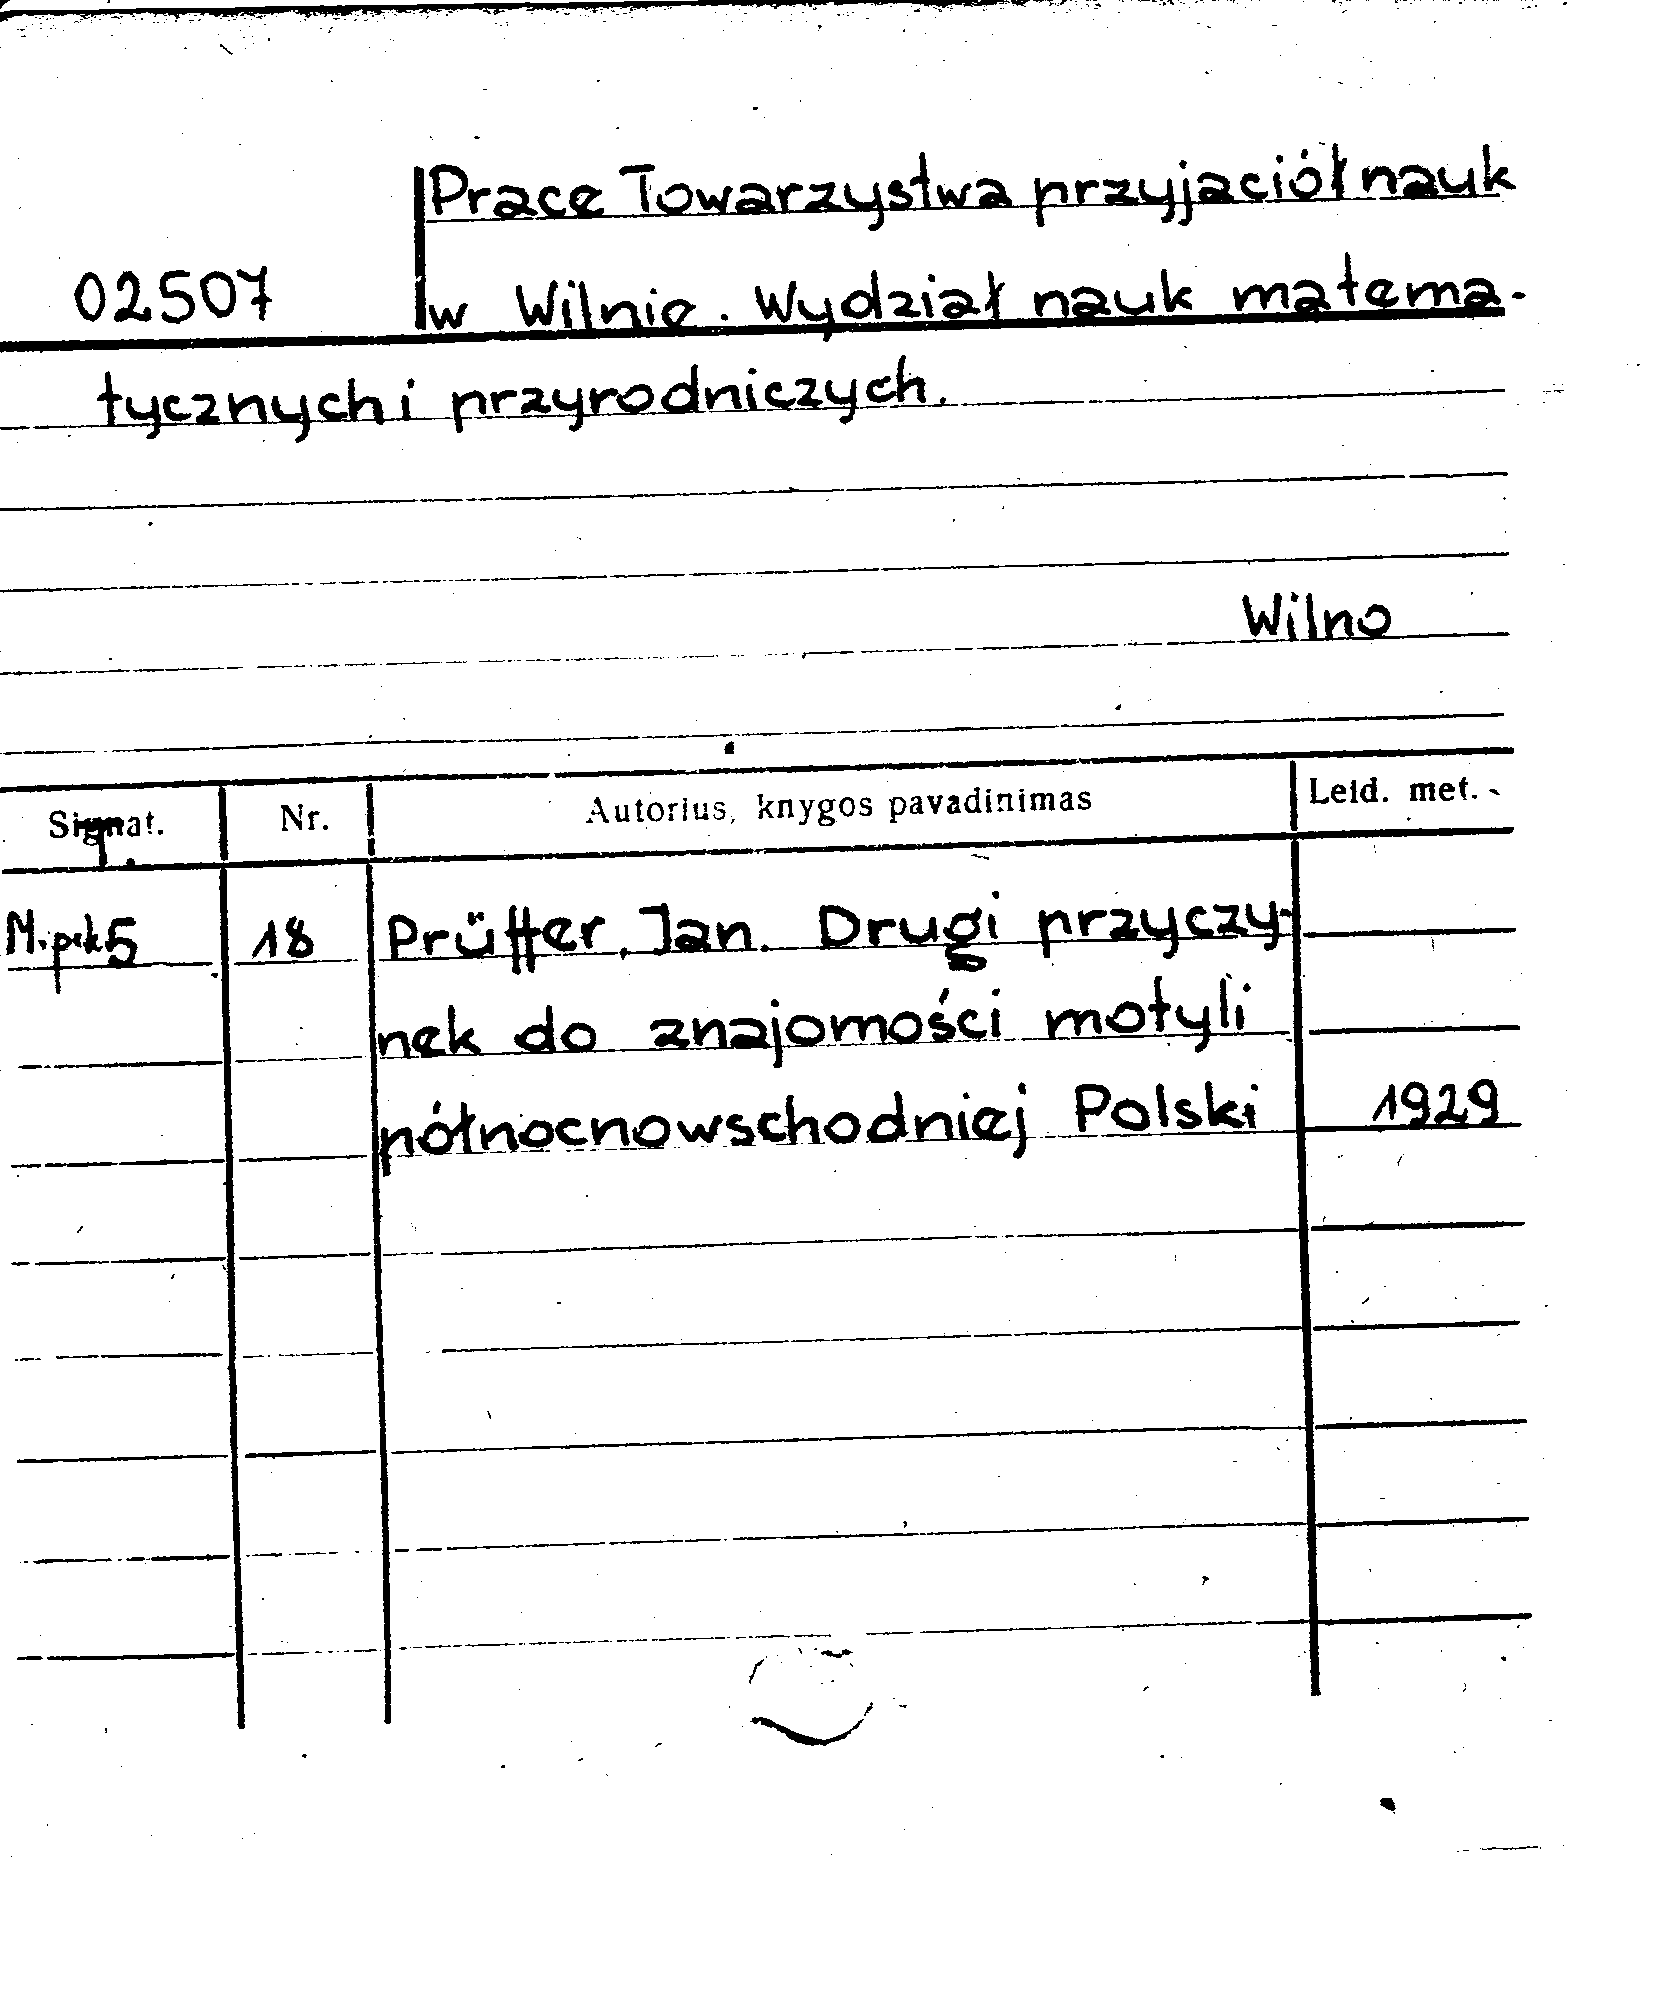 Prace Towarzystwa przyjaciół nauk
02507
w Wilnie. Wydział nauk matema-
tycznych i przyrodniczych.
Wilno
Signat. Nr. Autorius, knygos pavadinimas Leid. met.
18 Prüffer, Jan. Drugi przyczy-
nek do znajomości motyli
północnowschodniej Polski 1929